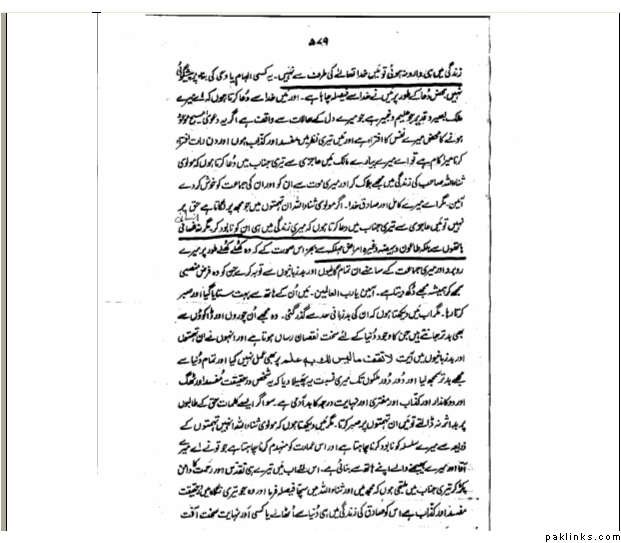 ۵۷۹
زندگی میں ہی وارد نہ ہوئی تو میں خدا تعالےٰ کی طرف سے نہیں۔ یہ کسی الہام یا وحی کی بنا پر پیشگوئی
نہیں محض دُعا کے طور پر میں نے خدا سے فیصلہ چاہا ہے۔ اور میں خدا سے دعا کرتا ہوں کہ اے میرے
مالک بصیر و قدیر جو علیم و خبیر ہے جو میرے دل کے حالات سے واقف ہے اگر یہ دعویٰ مسیح موعود
ہونے کا محض میرے نفس کا افترا ہے اور میں تیری نظر میں مفسد اور کذاب ہوں اور دن رات افترا
کرنا میرا کام ہے تو اے میرے پیارے مالک میں عاجزی سے تیری جناب میں دُعا کرتا ہوں کہ مولوی
ثناء اللہ صاحب کی زندگی میں مجھے ہلاک کر اور میری موت سے ان کو اور ان کی جماعت کو خوش کر دے
آمین۔ مگر اے میرے کامل اور صادق خدا۔ اگر مولوی ثناء اللہ ان تہمتوں میں جو مجھ پر لگاتا ہے حق پر
نہیں تو میں عاجزی سے تیری جناب میں دعا کرتا ہوں کہ میری زندگی میں ہی ان کو نابود کر۔ مگر نہ انسانی
ہاتھوں سے بلکہ طاعون و ہیضہ وغیرہ امراض مہلکہ سے بجز اس صورت کے کہ وہ کھلے کھلے طور پر میرے
روبرو اور میری جماعت کے سامنے ان تمام گالیوں اور بدزبانیوں سے توبہ کرے جن کو وہ فرض منصبی
سمجھ کر ہمیشہ مجھے دُکھ دیتا ہے۔ آمین یا رب العالمین۔ میں اُن کے ہاتھ سے بہت ستایا گیا اور صبر
کرتا رہا۔ مگر اب میں دیکھتا ہوں کہ ان کی بدزبانی حد سے گذر گئی۔ وہ مجھے اُن چوروں اور ڈاکوؤں سے
بھی بدتر جانتے ہیں جن کا وجود دُنیا کے لئے سخت نقصان رساں ہوتا ہے اور انہوں نے ان تہمتوں
اور بدزبانیوں میں آیت لا تقف ما لیس لک به علم پر بھی عمل نہیں کیا اور تمام دُنیا سے
مجھے بدتر سمجھ لیا اور دُور دُور ملکوں تک میری نسبت یہ پھیلا دیا کہ یہ شخص درحقیقت مُفسد اور ٹھگ
اور دوکاندار اور کذاب اور مفتری اور نہایت درجہ کا بد آدمی ہے۔ سو اگر ایسے کلمات حق کے طالبوں
پر بد اثر نہ ڈالتے تو میں ان تہمتوں پر صبر کرتا۔ مگر میں دیکھتا ہوں کہ مولوی ثناء اللہ انہیں تہمتوں کے
ذریعہ سے میرے سلسلہ کو نابود کرنا چاہتا ہے اور اس عمارت کو منہدم کرنا چاہتا ہے جو تونے اے میرے
آقا اور میرے بھیجنے والے اپنے ہاتھ سے بنائی ہے۔ اس لئے اب میں تیرے ہی تقدس اور رحمت کا دامن
پکڑ کر تیری جناب میں ملتجی ہوں کہ مجھ میں اور ثناء اللہ میں سچا فیصلہ فرما اور وہ جو تیری نگاہ میں درحقیقت
مفسد اور کذاب ہے اس کو صادق کی زندگی میں ہی دُنیا سے اُٹھالے یا کسی اور نہایت سخت آفت
paklinks.com